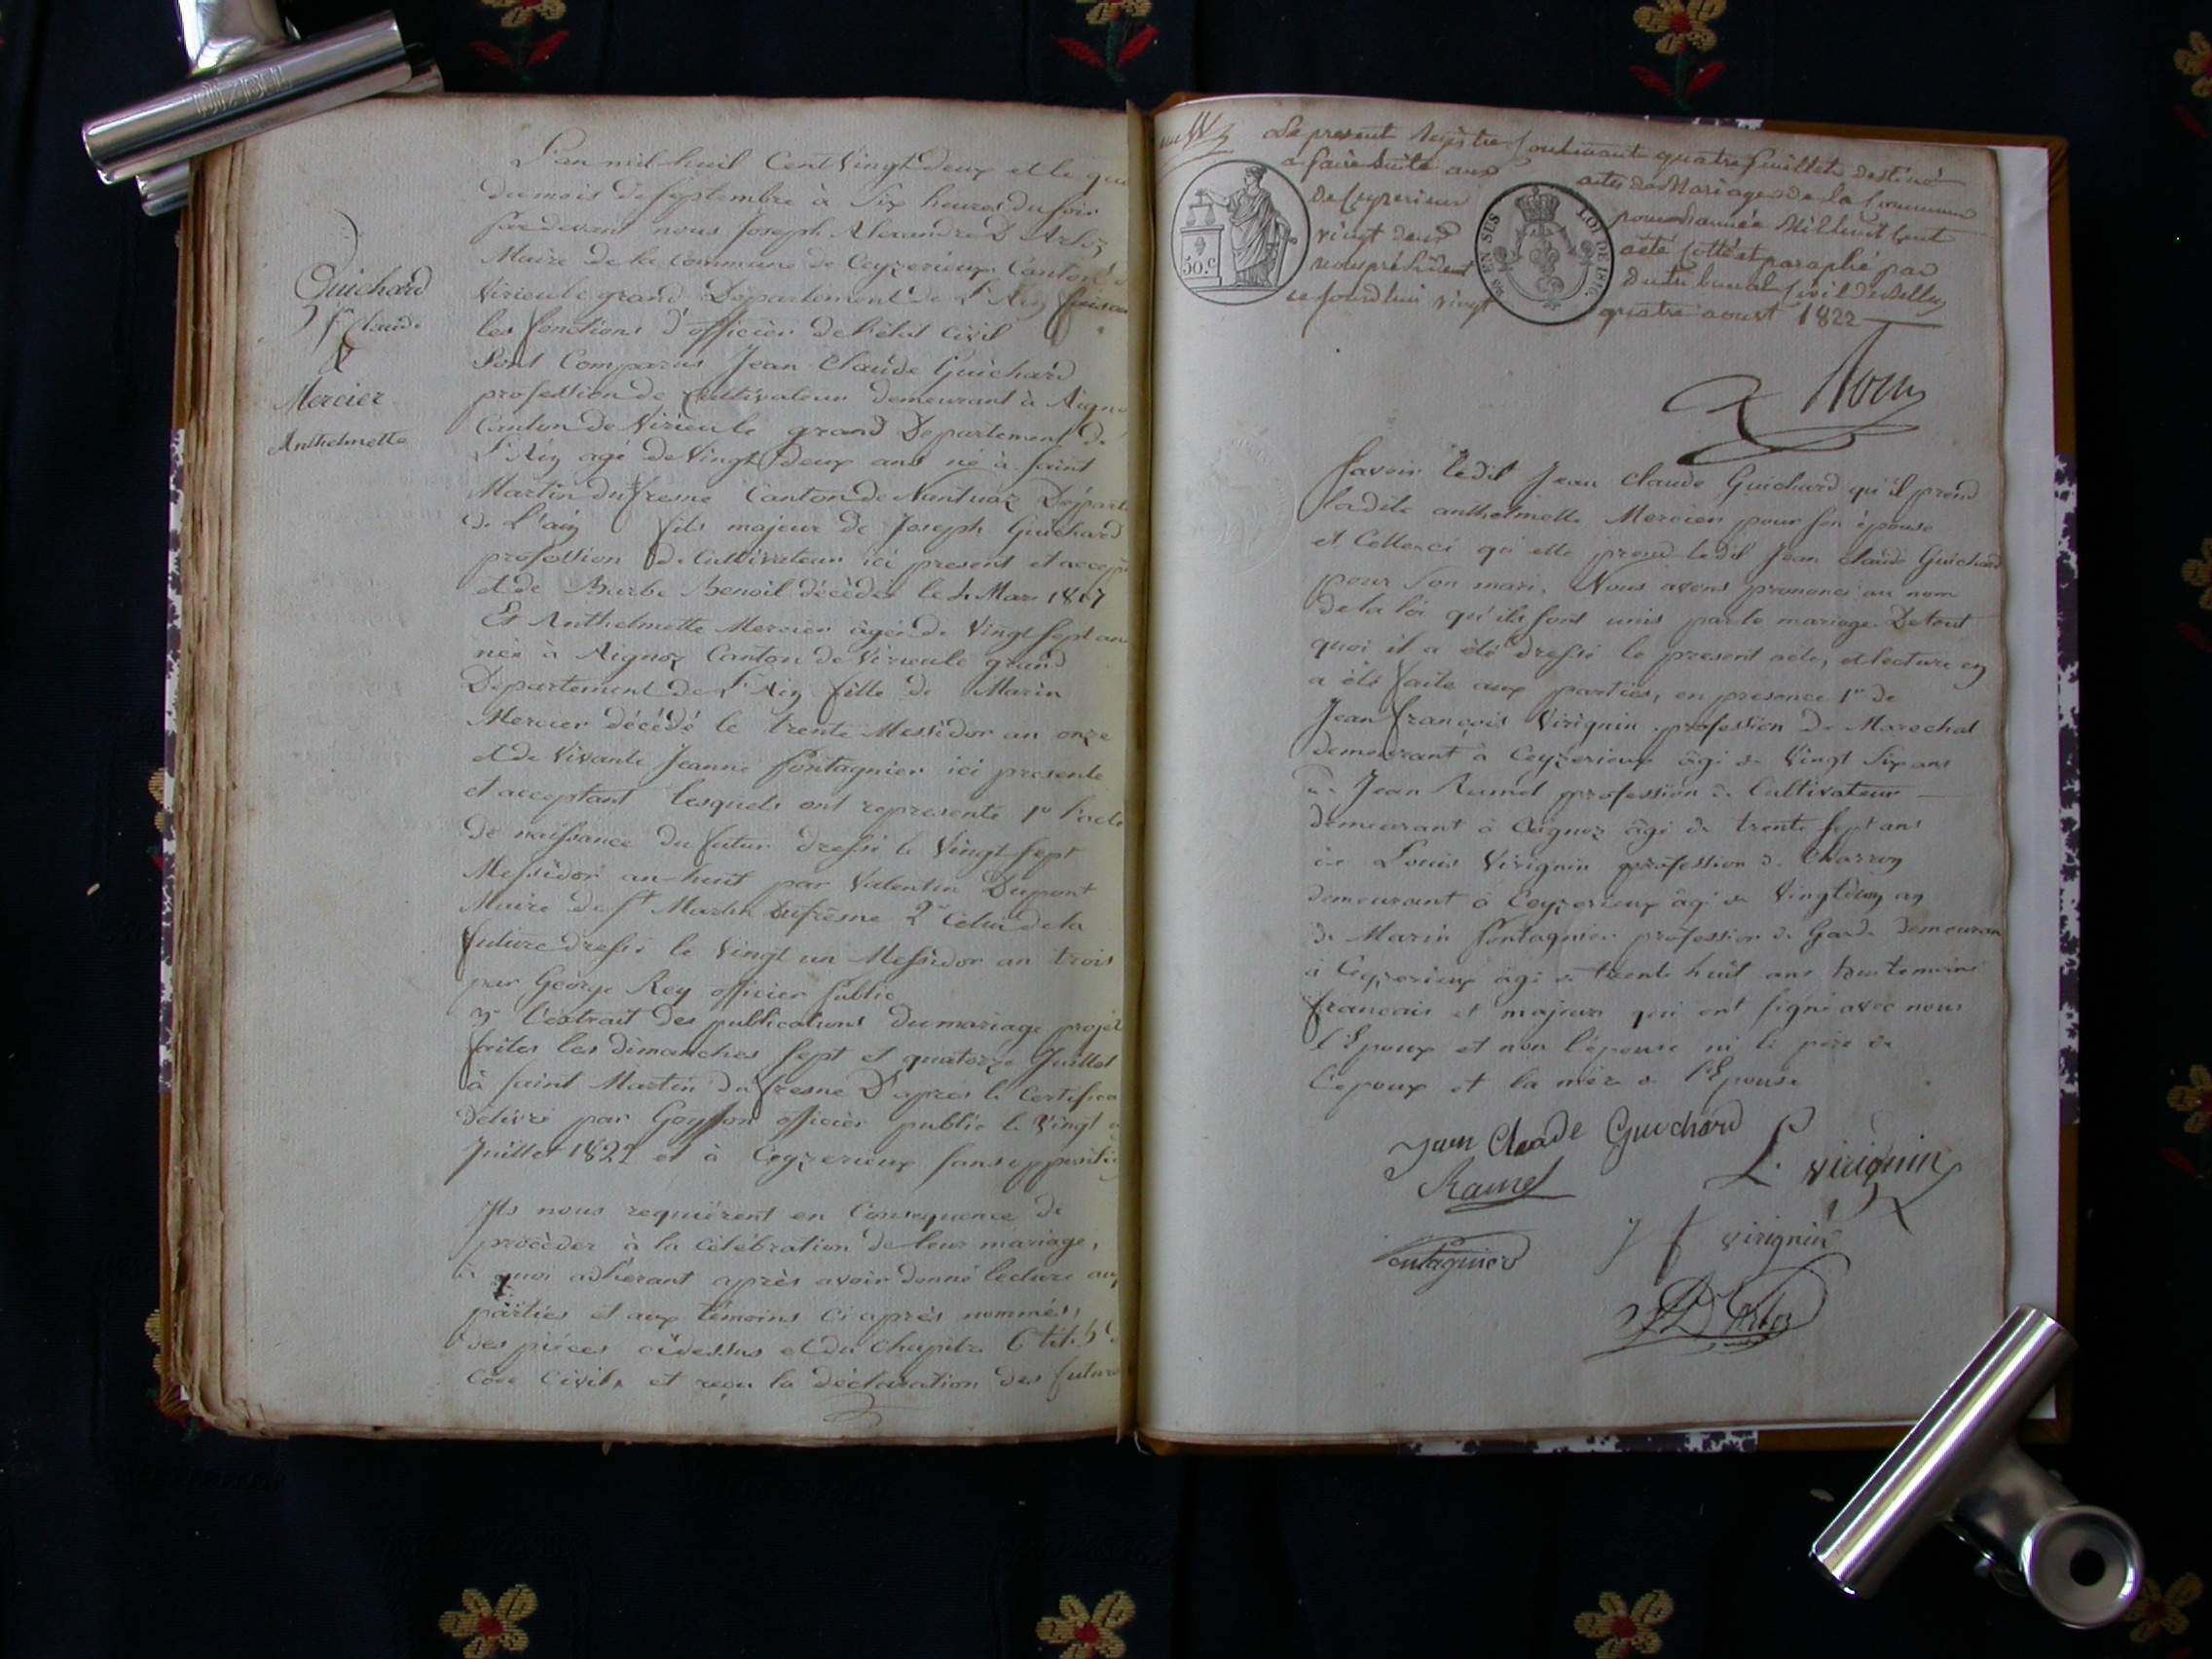 Guichard
Jn Claude
&
Mercier
Anthelmette
L'an mil huit Cent Vingt deux et le
du mois de Septembre à Six heures du soir
par devant nous Joseph Alexandre D'Arloz
Maire de la Commune de Ceyzerieux Canton
Virieu le grand Département de L'Ain faisan
les fonctions d'officier de l'état civil
Sont Comparus Jean Claude Guichard
profession de Cultivateur demeurant à Aigno
Canton de Virieu le grand Département de
L'Ain agé de Vingt Deux ans né à Saint
Martin du fresne Canton de Nantuaz Départ
de L'ain fils majeur de Joseph Guichard
profession de Cultivateur ici present et accep
et de Barbe Benoit décédée le 4 Mars 1817
Et Anthelmette Mercier âgée de Vingt Sept an
née à Aignoz Canton de Virieu le grand
Département de L'Ain fille de Marin
Mercier décédé le trente Messidor an onze
et de Vivante Jeanne Pontagnier ici presente
et acceptant lesquels ont representé 1º l'acte
de naissance du futur dressé le Vingt Sept
Messidor an huit par Valentin Dupont
Maire de St Martin Dufresne 2º Celui de la
future dressé le Vingt un Messidor an trois
par George Rey officier Public
3º L'extrait des publications du mariage projet
faites les dimanches Sept et quatorze Juillet
à Saint Martin du fresne D'après le Certifica
délivré par officier public le Vingt
Juillet 1822 et à Ceyzerieux sans oppositi
Ils nous requièrent en Consequence de
procéder à la célébration de leur mariage,
à quoi adhérant après avoir donné lecture aux
parties et aux témoins ci après nommés,
des pièces cidessus et du Chapitre 6 tit. 5
Code Civil, et reçu la déclaration des futurs
Le present Registre Contenant quatre feuillets destiné
a faire Suite aux actes de Mariage de la Commune
de Ceyzerieux pour l'année Mil huit Cent
vingt deux a été Cotté et paraphé par
nous président du tribunal Civil de Belley
ce jourd'hui vingt quatre aoust 1822
50.C
EN SUS
LOI DE 1816.
Savoir ledit Jean Claude Guichard qu'il prend
ladite anthelmette Mercier pour son épouse
et Celle-ci qu'elle prend ledit Jean Claude Guichard
pour Son mari, Nous avons prononcé au nom
de la loi qu'ils sont unis par le mariage. De tout
quoi il a été dressé le present acte, et lecture en
a été faite aux parties, en presence 1º de
Jean François Virignin profession de Marechal
demeurant à Ceyzerieux âgé de Vingt Six ans
de Jean Ramel profession de Cultivateur
demeurant à Aignoz âgé de trente Sept ans
de Louis Virignin profession de Charron
demeurant à Ceyzerieux âgé de Vingt deux an
de Marin Pontagnier profession de Garde demeuran
à Ceyzerieux âgé de trente huit ans tous temoins
français et majeurs qui ont signé avec nous
l'Epoux et non l'épouse ni le père de
l'epoux et la mère de l'Epouse
Jean Claude Guichard
Ramel
L. virignin
Pontagnier
J f virignin
D'Arloz